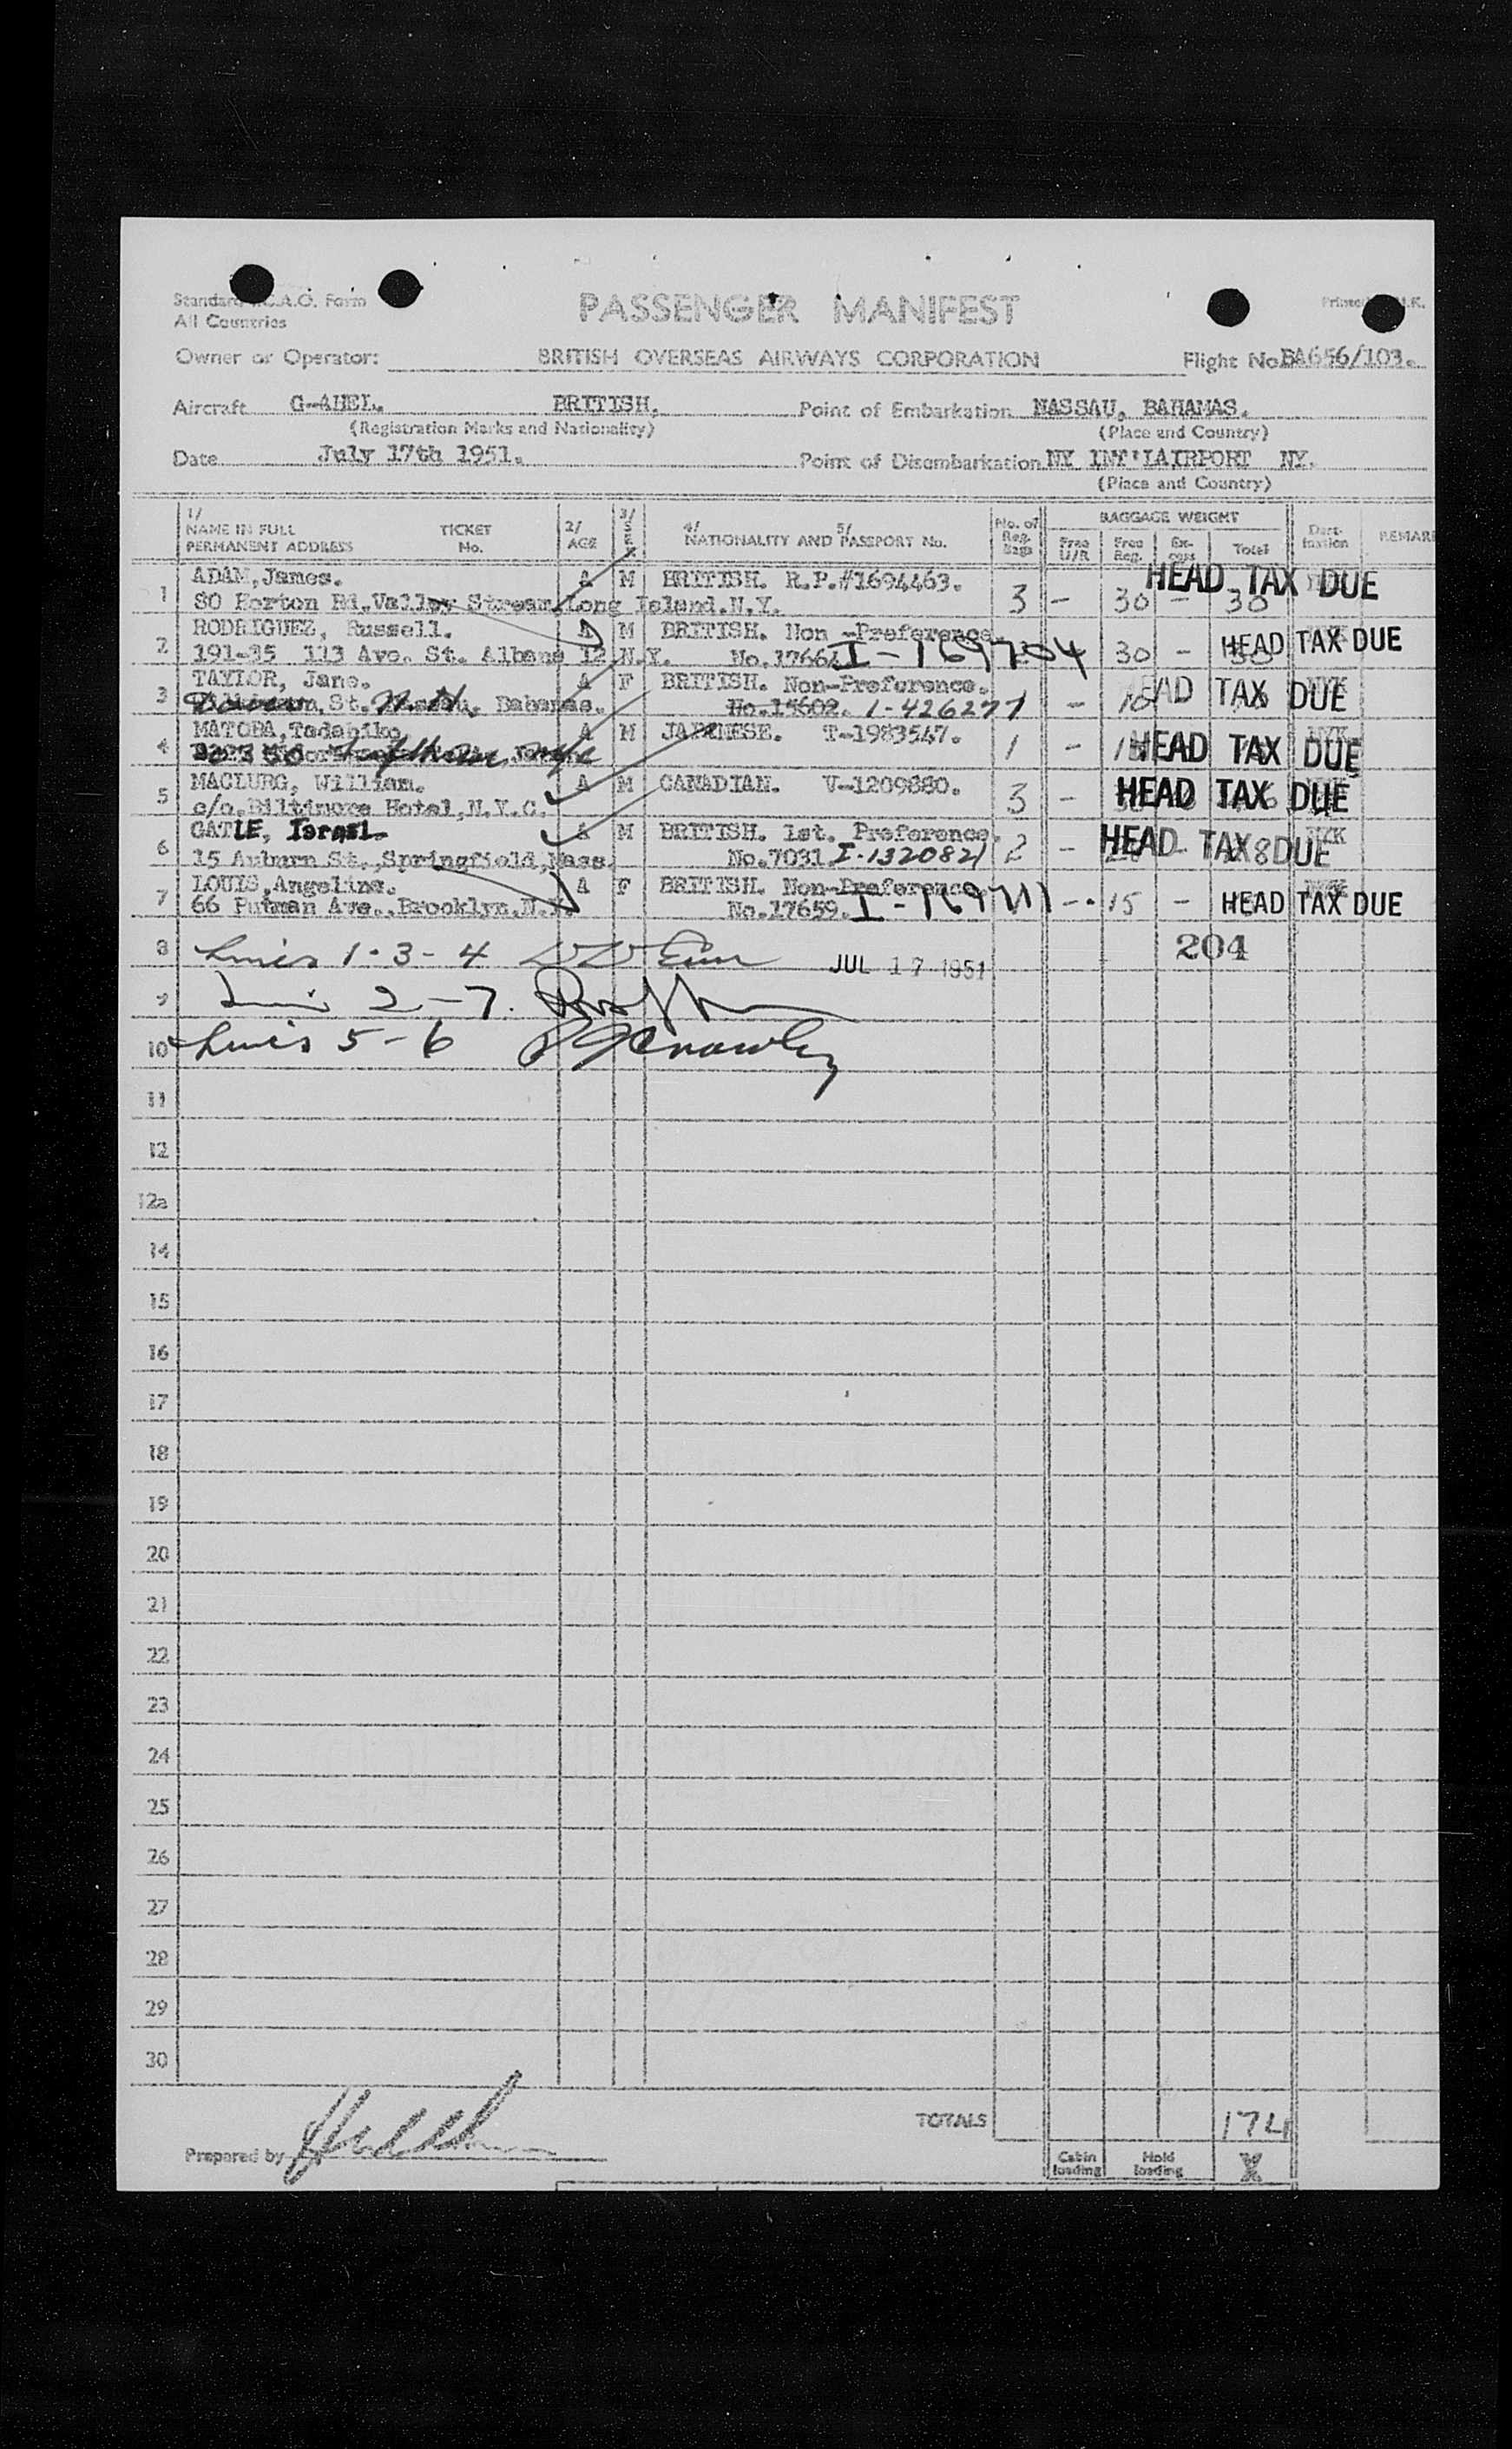 Standard I.C.A.O. Form
All Countries
PASSENGER MANIFEST
Printed U.K.
Owner or Operator: BRITISH OVERSEAS AIRWAYS CORPORATION Flight No. BA656/103.
Aircraft G-AHEL. BRITISH. Point of Embarkation NASSAU, BAHAMAS.
(Registration Marks and Nationality) (Place and Country)
Date July 17th 1951. Point of Disembarkation NY INT'LAIRPORT NY.
(Place and Country)
1/ NAME IN FULL PERMANENT ADDRESS TICKET No. 2/ AGE 3/ SEX 4/ 5/ NATIONALITY AND PASSPORT No. No. of Reg. Bags BAGGAGE WEIGHT Free U/R Free Reg. Ex-cess Total Dest-ination REMAR
1 ADAM, James. A M BRITISH. R.P.#1694463. HEAD TAX DUE
80 Horton Rd. Valley Stream, Long Island. N.Y. 3 - 30 - 30
2 RODRIGUEZ, Russell. A M BRITISH. Non-Preference.
191-35 113 Ave. St. Albans 12 N.Y. No. I-169704 30 - HEAD TAX DUE
3 TAYLOR, Jane. A F BRITISH. Non-Preference. HEAD TAX DUE
St. Nassau, Bahamas. No. 15602. I-426277 1 -
4 MATOBA, Tadahiko A M JAPANESE. T-1983547. 1 - HEAD TAX DUE
5 MACLURG, William. A M CANADIAN. V-1209880.
c/o. Biltimore Hotel, N.Y.C. 3 - HEAD TAX DUE
6 GATLE, Israel. A M BRITISH. 1st. Preference.
15 Auburn St., Springfield, Mass. No. 7031. I-132082 2 - HEAD TAX DUE
7 LOUIS, Angeline. A F BRITISH. Non-Preference.
66 Putman Ave., Brooklyn, N.Y. No. 17659. I-169711 - 15 - HEAD TAX DUE
8 Lines 1-3-4 JUL 17 1951 204
9 Lines 2-7.
10 Lines 5-6
11
12
12a
14
15
16
17
18
19
20
21
22
23
24
25
26
27
28
29
30
TOTALS 174
Prepared by
Cabin loading Hold loading X